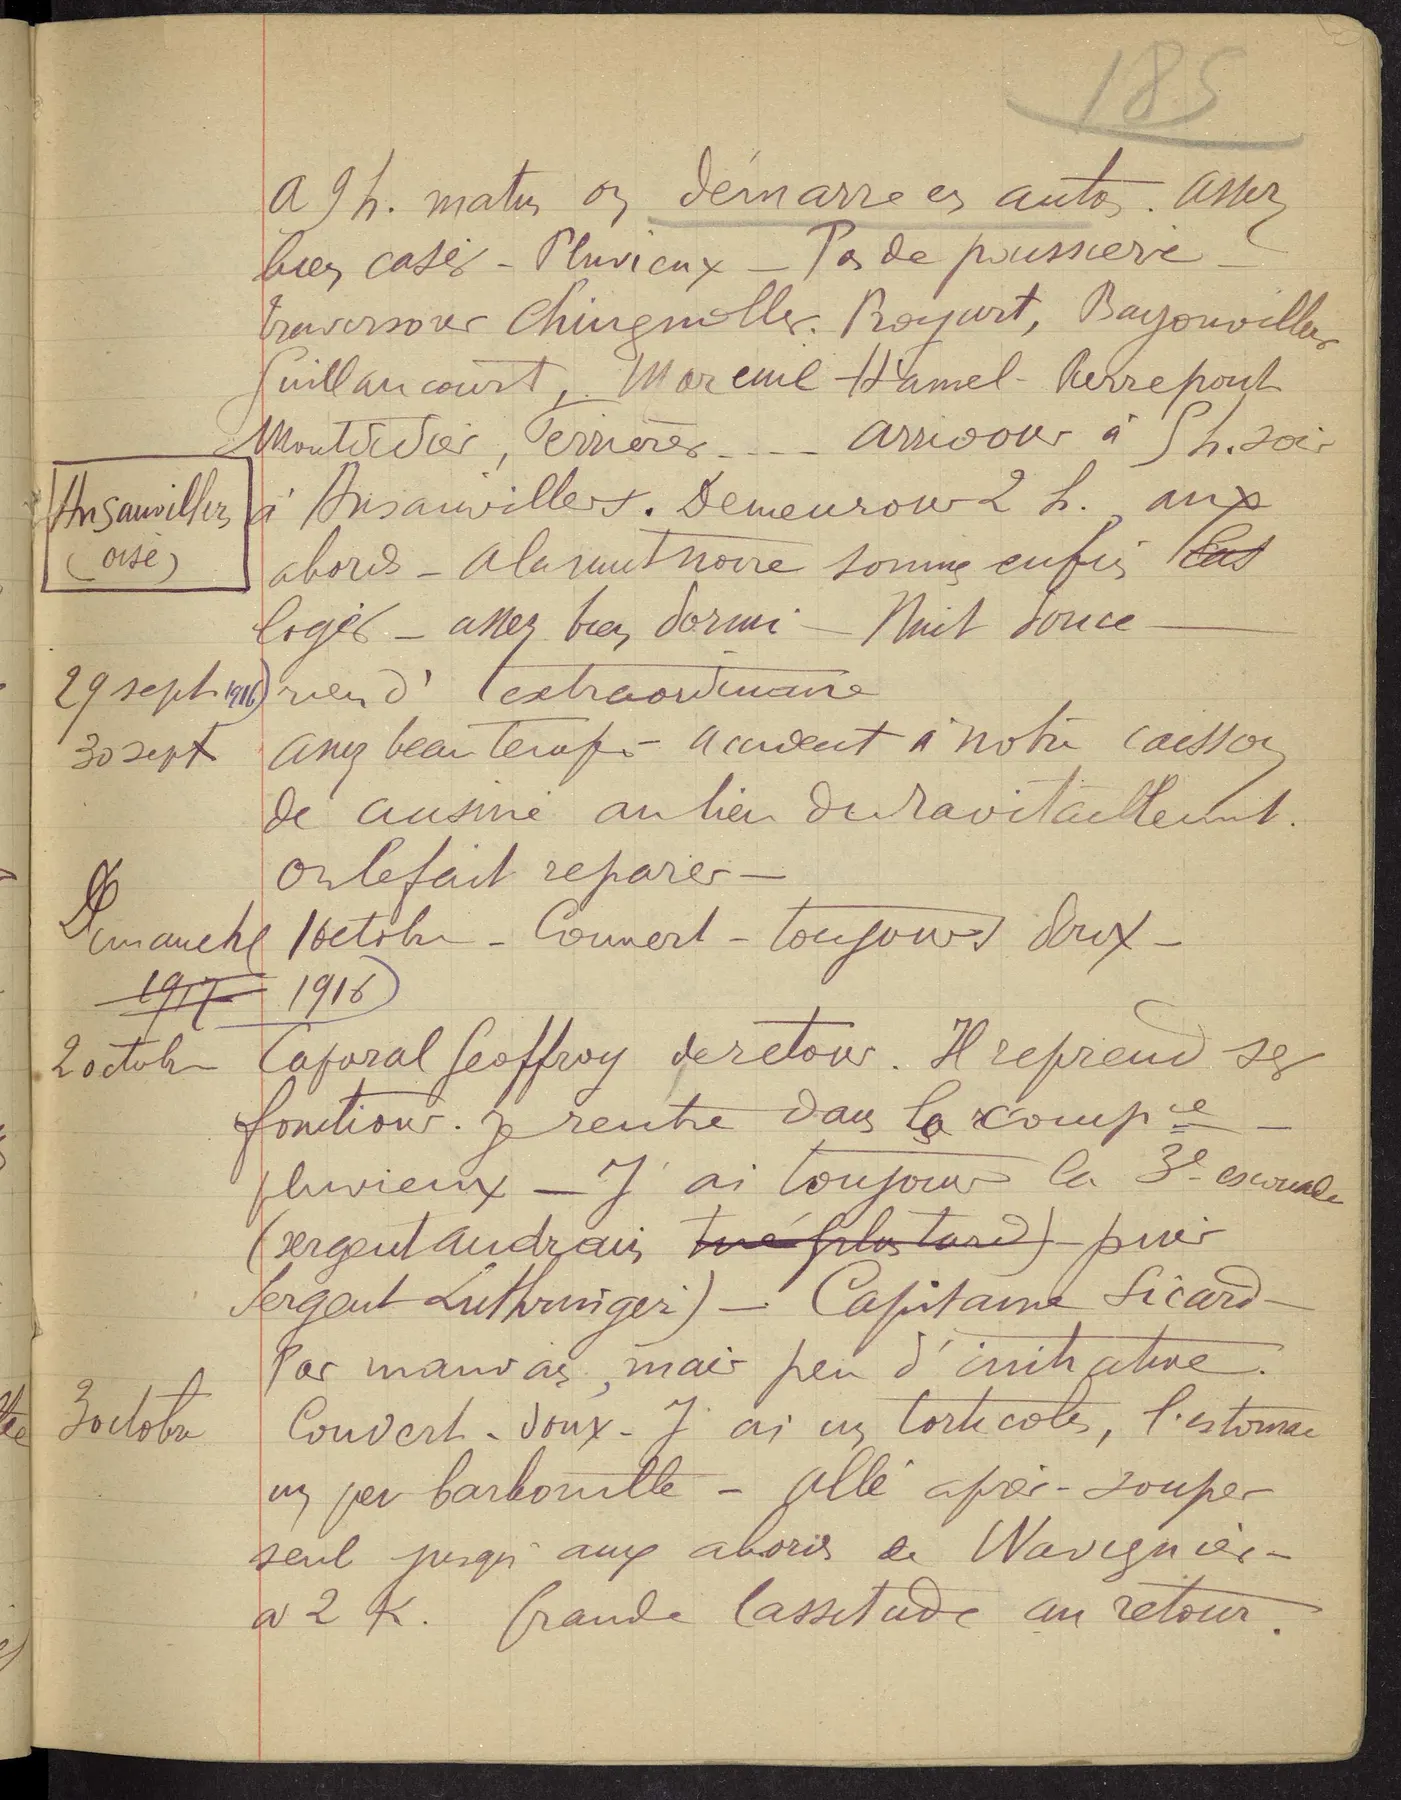 185
A 9 h. matin on démarre en autos. Assez
bien casés - Pluvieux - Pas de poussière -
traversons Chuignolles. Proyart, Bayonvillers
Guillaucourt, Moreuil - Hamel - Pierrepont
Montdidier, Ferrières .... arrivons à 5 h. soir
Ansauvillers
(oise)
à Ansauvillers. Demeurons 2 h. aux
abords - A la nuit noire sommes enfin
logés - assez bien dormi - Nuit douce -
29 sept 1916) rien d'extraordinaire
30 sept assez beau temps - accident à notre caisson
de cuisine au lieu du ravitaillement.
on le fait réparer -
Dimanche 1 octobre - Couvert - toujours doux -
1917 1916)
2 octobre Caporal Geoffroy de retour. Il reprend ses
fonctions. Je rentre dans la comp ie -
pluvieux - J'ai toujours la 3e escouade
(sergent Audrain tué plus tard) puis
Sergent Luthringer) - Capitaine Sicard -
Pas mauvais, mais peu d'initiative.
3 octobre Couvert - doux - J'ai un torticolis, l'estomac
un peu barbouillé - Allé après-souper
seul jusqu'aux abords de Wavignies -
à 2 K. Grande lassitude au retour.